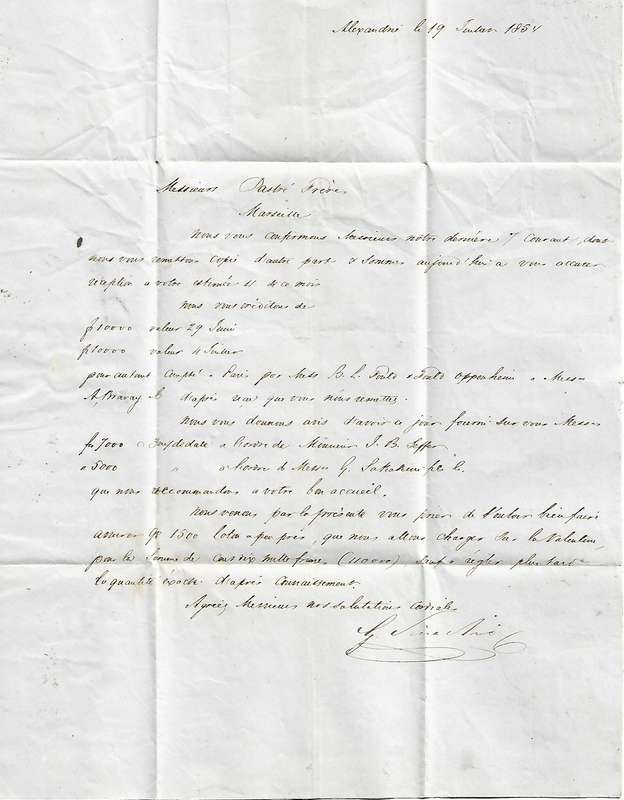 Alexandrie le 19 Juillet 1854
Messieurs Pastré Frères
Marseille
Nous vous confirmons Messieurs notre dernière 7 Courant, dont
nous vous remettons copie d'autre part & sommes aujourd'hui à vous accuser
reception à votre estimée 4 ce mois
Nous vous créditons de
fr 10000 valeur 29 Juin
fr 10000 valeur 4 Juillet
pour autant compté à Paris par Mess B. L. Fould & Fould Oppenheim à Mess
A. Bravay d'après reçu que vous nous remettez.
Nous vous donnons avis d'avoir ce jour fourni sur vous Mess
fr 7000 a de date a l'ordre de Monsieur J. B.
" 5000 " a l'ordre de Mess G. C.
que nous recommandons a votre bon accueil.
Nous venons par la présente vous prier de vouloir bien faire
assurer 1500 a peu près, que nous allons charger sur la Valentine,
pour la Somme de cent dix mille francs (110000) sauf a régler plus tard
la quantité exacte d'après Connaissement
Agréez Messieurs nos salutations cordiales